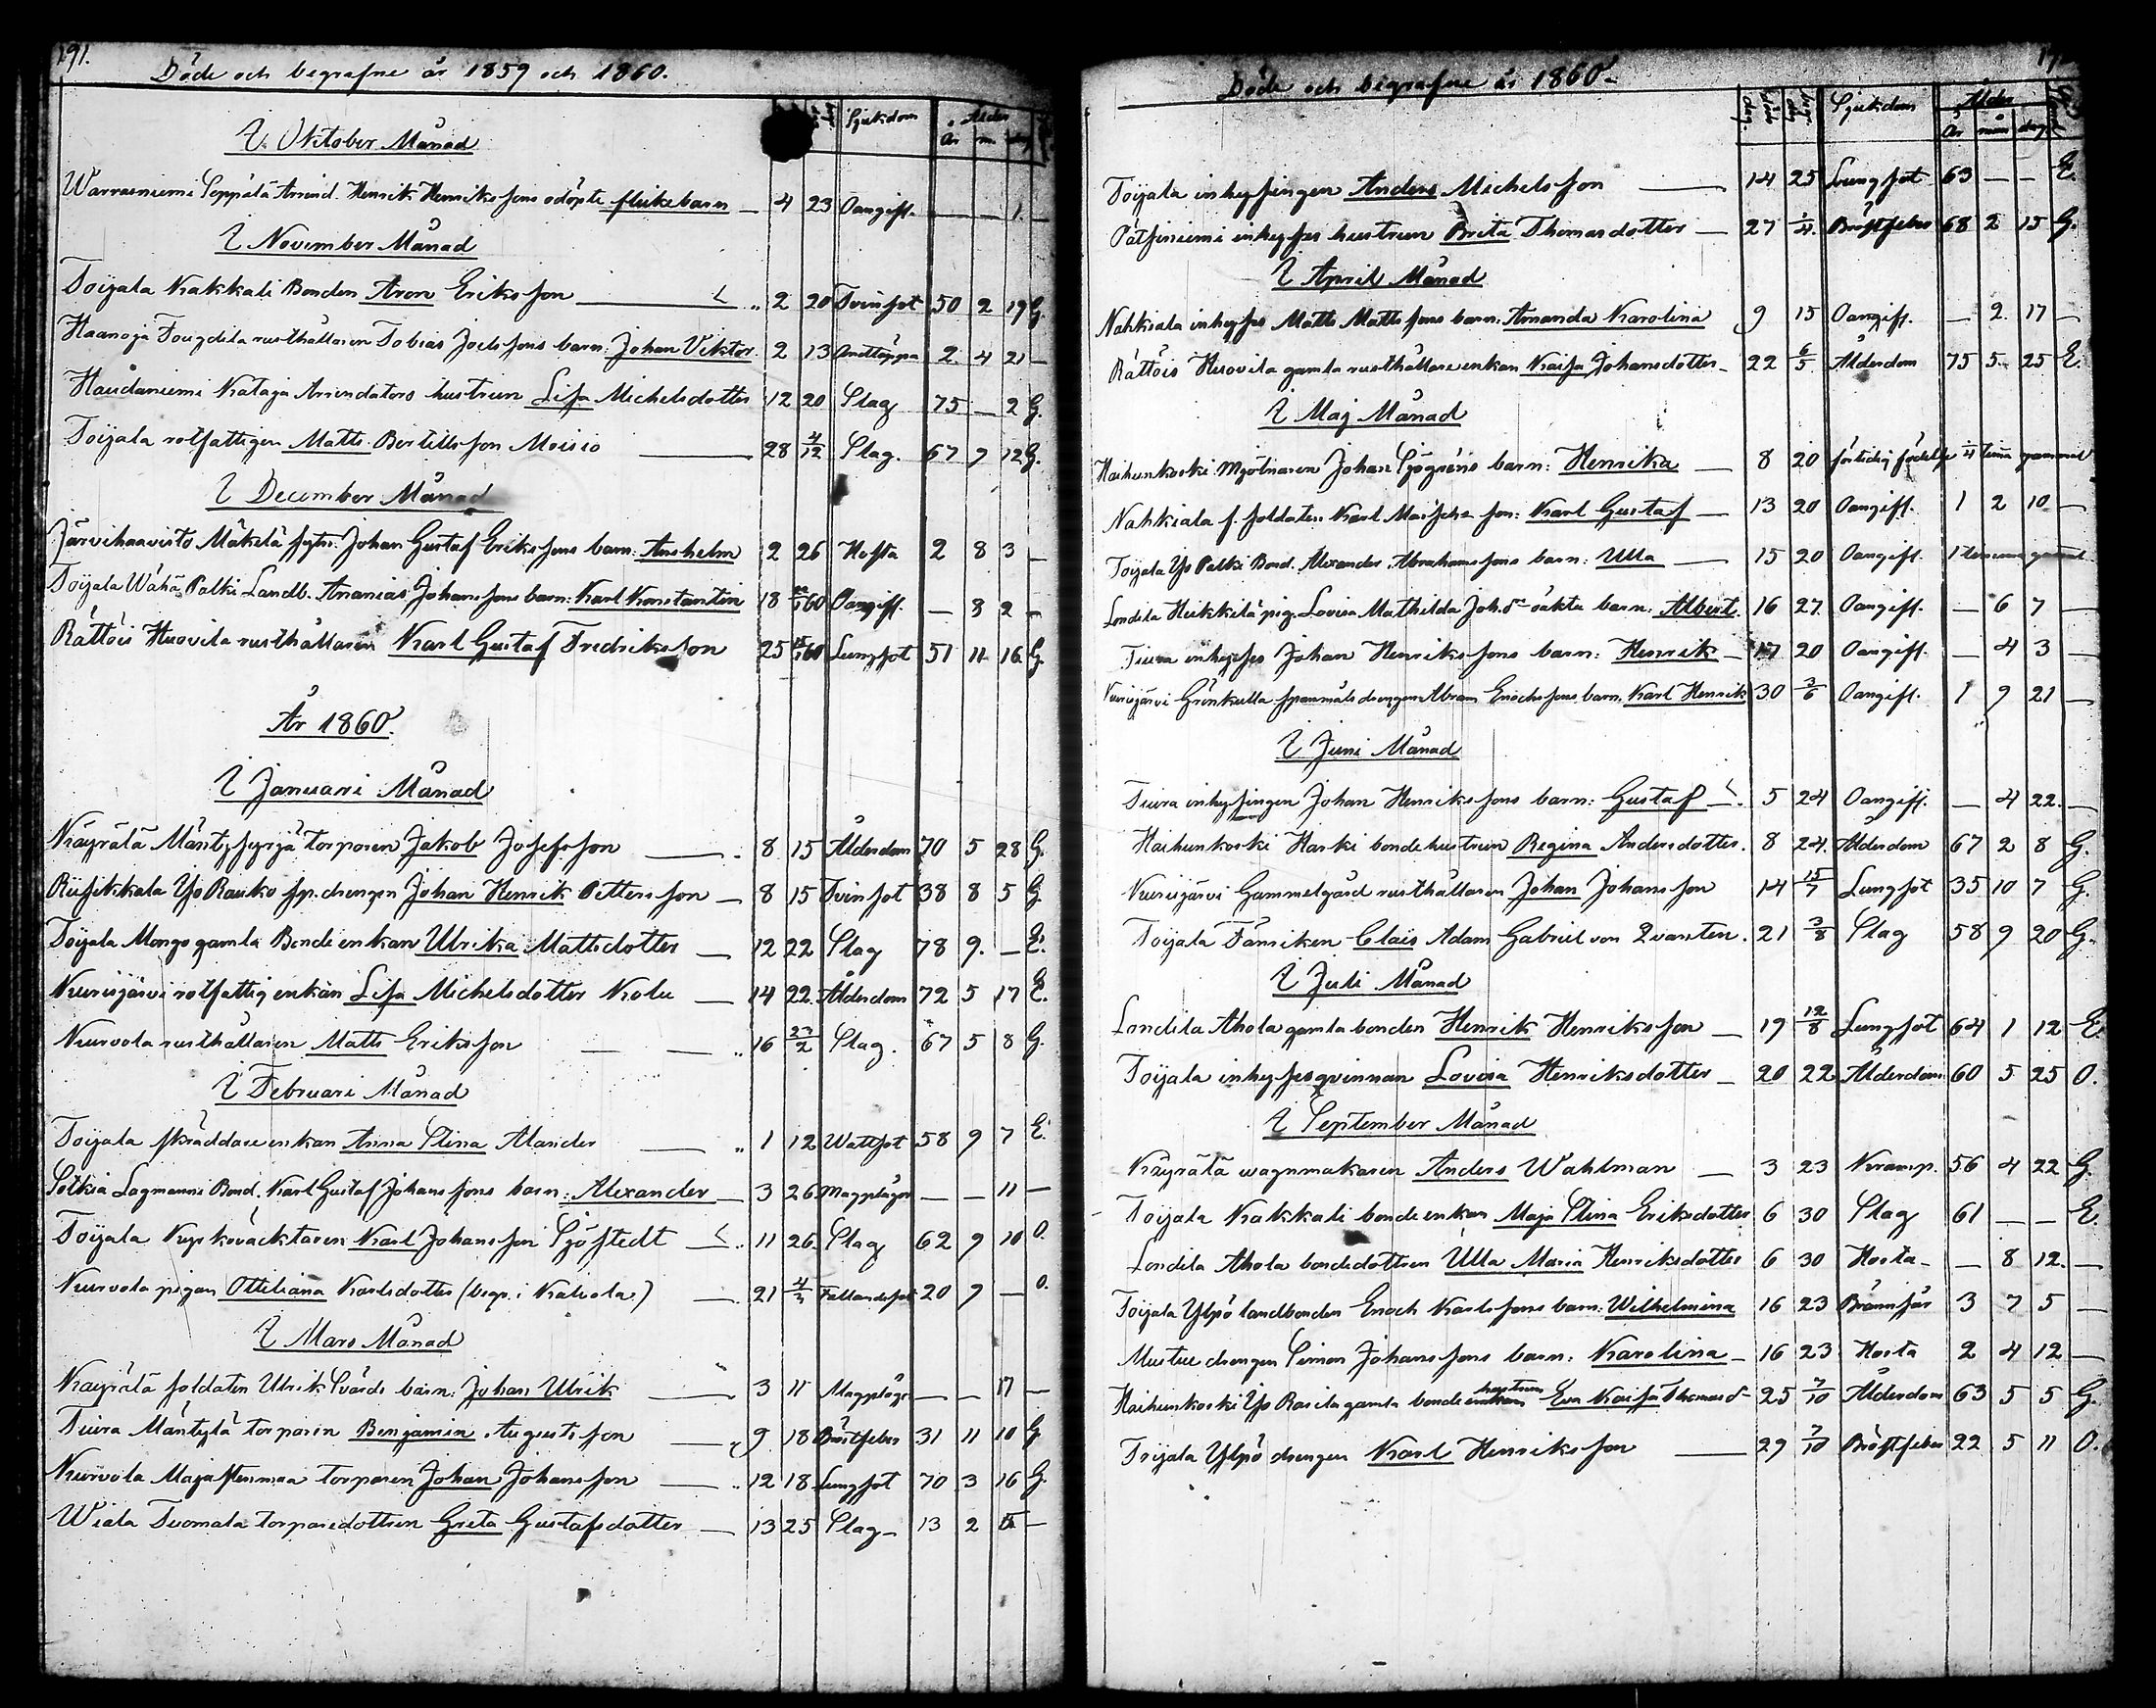 191.
Döde och begrafne år 1859 och 1860.
Sjukdom Ålder
år m. dag
I Oktober Månad
Warrasniemi Seppälä Arrend. Henrik Henrikssons odöpte flickebarn — 4 23 Oangift. — — 1 —
I November Månad
Toijala Kakkali Bonden Aron Eriksson — 2 20 Tvinsot 50 2 19 G.
Haanoja Fougdila rusthållaren Tobias Joelssons barn: Johan Viktor. 2 13 Andtäppa 2 4 21 —
Haudaniemi Kataja Arrendators hustrun Lisa Michelsdotter 12 20 Slag 75 — 2 G.
Toijala rotfattigen Matts Bertillsson Moisio — 28 4/12 Slag. 67 9 12 G.
I December Månad
Järvihaavisto Mäkelä Johan Gustaf Erikssons barn: Anshelm 12 26 Hosta 2 8 3 —
Toijala Wähä Palki Landb. Ananias Johanssons barn: Karl Konstantin 18 60 Oangift. — 8 2 —
Rättöis Huovila rusthållaren Karl Gustaf Fredriksson 25 60 Lungsot 51 11 16 G.
År 1860.
I Januari Månad
Käyrälä Mäntysyrjä torparen Jakob Josefsson — 8 15 Ålderdom 70 5 28 G.
Riisikkala Yso Rauko sp. drengen Johan Henrik Pettersson — 8 15 Tvinsot 38 8 5 G.
Toijala Mongo gamla Bonde enkan Ulrika Mattsdotter — 12 22 Slag 78 9. — E.
Kurisjärvi rotfattig enkan Lisa Michelsdotter Kolu — 14 22. Ålderdom 72 5 17 E.
Kurvola rusthållaren Matts Eriksson — — 16 Slag. 67 5 8 G.
I Februari Månad
Toijala skräddare enkan Anna Stina Alander — 1 12 Wattsot 58 9 7 E.
Sotkia Lagmanni Bond. Karl Gustaf Johanssons barn: Alexander — 3 26 Magplågor — — 11 —
Toijala Kyrkoväcktaren Karl Johansson Sjöstedt — 11 26. Slag 62 9 10 O.
Kurvola pigan Ottiliana Karlsdotter (begr. i Kalvola.) — 21 Fallandesot 20 9 — O.
I Mars Månad
Käyrälä soldaten Ulrik Svärds barn: Johan Ulrik — 3 11 Magplågor — — 17 —
Tiura Mäntylä torparen Benjamin Augustsson — 9 18 Bröstfeber 31 11 10 G.
Kurvola Majastenmaa torparen Johan Johansson — 12 18 Lungsot 70 3 16 G.
Wiala Tuomala torparedottren Greta Gustafsdotter — 13 25 Slag — 13 2 —
Döde och begrafne år 1860.
Sjukdom Ålder
år mån dag
Toijala inhysingen Anders Michelsson — 14 25 Lungsot 63 — — E.
Patsiniemi inhyses hustrun Brita Thomasdotter — 27 1/4. Bröstfeber 68 2 15 G.
I April Månad
Nahkiala inhyses Matts Mattssons barn: Amanda Karolina 9 15 Oangift. — 2. 17 —
Rättöis Huovila gamla rusthållareenkan Kaisa Johansdotter — 22 6/5 Ålderdom 75 5 25 E.
I Maj Månad
Haihunkoski Mjölnaren Johan Sjögréns barn: Henrika — 8 20 förtidig födelse 1/4 timma gammal
Nahkiala f. soldaten Karl son: Karl Gustaf — 13 20 Oangift. 1 2 10 —
Toijala Yso Palki Bond. Alexander Abrahamssons barn: Ulla — 15 20 Oangift. 1 timma gammal
Londila Heikkilä pig. Lovisa Mathilda Joh.dr oäkta barn: Albert. 16 27. Oangift. — 6 7 —
Tiura inhyses Johan Henrikssons barn: Henrik — 17 20 Oangift. — 4 3 —
Kurisjärvi Grönkulla spanmålsdrengen Abram Enochssons barn. Karl Henrik 30 3/6 Oangift. 1 9 21 —
I Juni Månad
Tiura inhysingen Johan Henrikssons barn: Gustaf — 5 24 Oangift. — 4 22. —
Haihunkoski Harki bondehustrun Regina Andersdotter. 8 24. Ålderdom 67 2 8 G.
Kurisjärvi Gammelgård rusthållaren Johan Johansson 14 15/7 Lungsot 35 10 7 G.
Toijala Fänriken Claës Adam Gabriel von Qvanten. 21 3/8 Slag 58 9 20 G.
I Juli Månad
Londila Ahola gamla bonden Henrik Henriksson — 19 12/8 Lungsot 64 1 12 E.
Toijala inhysesqvinnan Lovisa Henriksdotter — 20 22 Ålderdom 60 5 25 O.
I September Månad
Käyrälä wagnmakaren Anders Wahlman — 3 23 Kramp. 56 4 22 G.
Toijala Kakkali bondeenkan Maja Stina Eriksdotter 6 30 Slag 61 — — E.
Londila Ahola bondedottren Ulla Maria Henriksdotter 6 30 Hosta — — 8 12. —
Toijala Ylpö landbonden Enoch Karlssons barn: Wilhelmina 16 23 Brännsår 3 7 5 —
Mustue drengen Simon Johanssons barn: Karolina — 16 23 Hosta 2 4 12 —
hustrun
Haihunkoski Yso Rasila gamla bonde enkan Eva Kaisa Thomasdr 25 7/10 Ålderdom 63 5 5 G.
Toijala Ylpö drengen Karl Henriksson — 29 7/10 Bröstfeber 22 5 11 O.